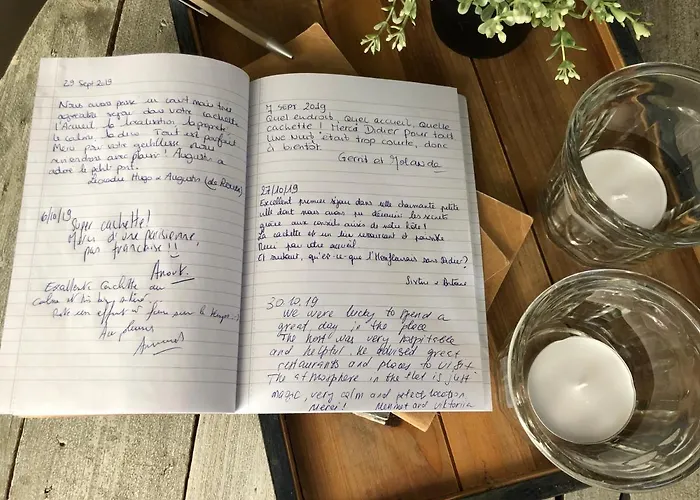 29 Sept 2019
Nous avons passé un court mais très
agréable séjour dans votre cachette.
l'Accueil, la localisation, la propreté,
le calme, la déco. Tout est parfait.
Merci pour votre gentillesse. Nous
reviendrons avec plaisir! Augustin a
adoré le petit pont.
Hugo & Augustin
6/10/19
Super cachette!
Merci d'une parisienne,
pas franchise!!
Anouk.
Excellente Cachette au
calme et très bien
un effort à faire sur le temps...
Au plaisir
7 SEPT 2019
Quel endroit, Quel accueil, Quelle
cachette! Merci Didier pour tout
Une nuit était trop courte, donc
à bientôt.
Gerrit et Yolanda
27/10/19
Excellent premier séjour dans cette charmante petite
ville dont nous avons pu découvrir les secrets
grâce aux conseils avisés de notre hôte!
La cachette est un lieu ressourçant et paisible
Merci pour votre accueil
Et surtout, qu'est-ce-que l'Honfleurais sans Didier?
30.10.19
We were lucky to spend a
great day in the place
The host was very hospitable
and helpful. He advised great
restaurants and places to visit
The atmosphere in the flat is just
magic, very calm and perfect location
Merci! and Viktoriia